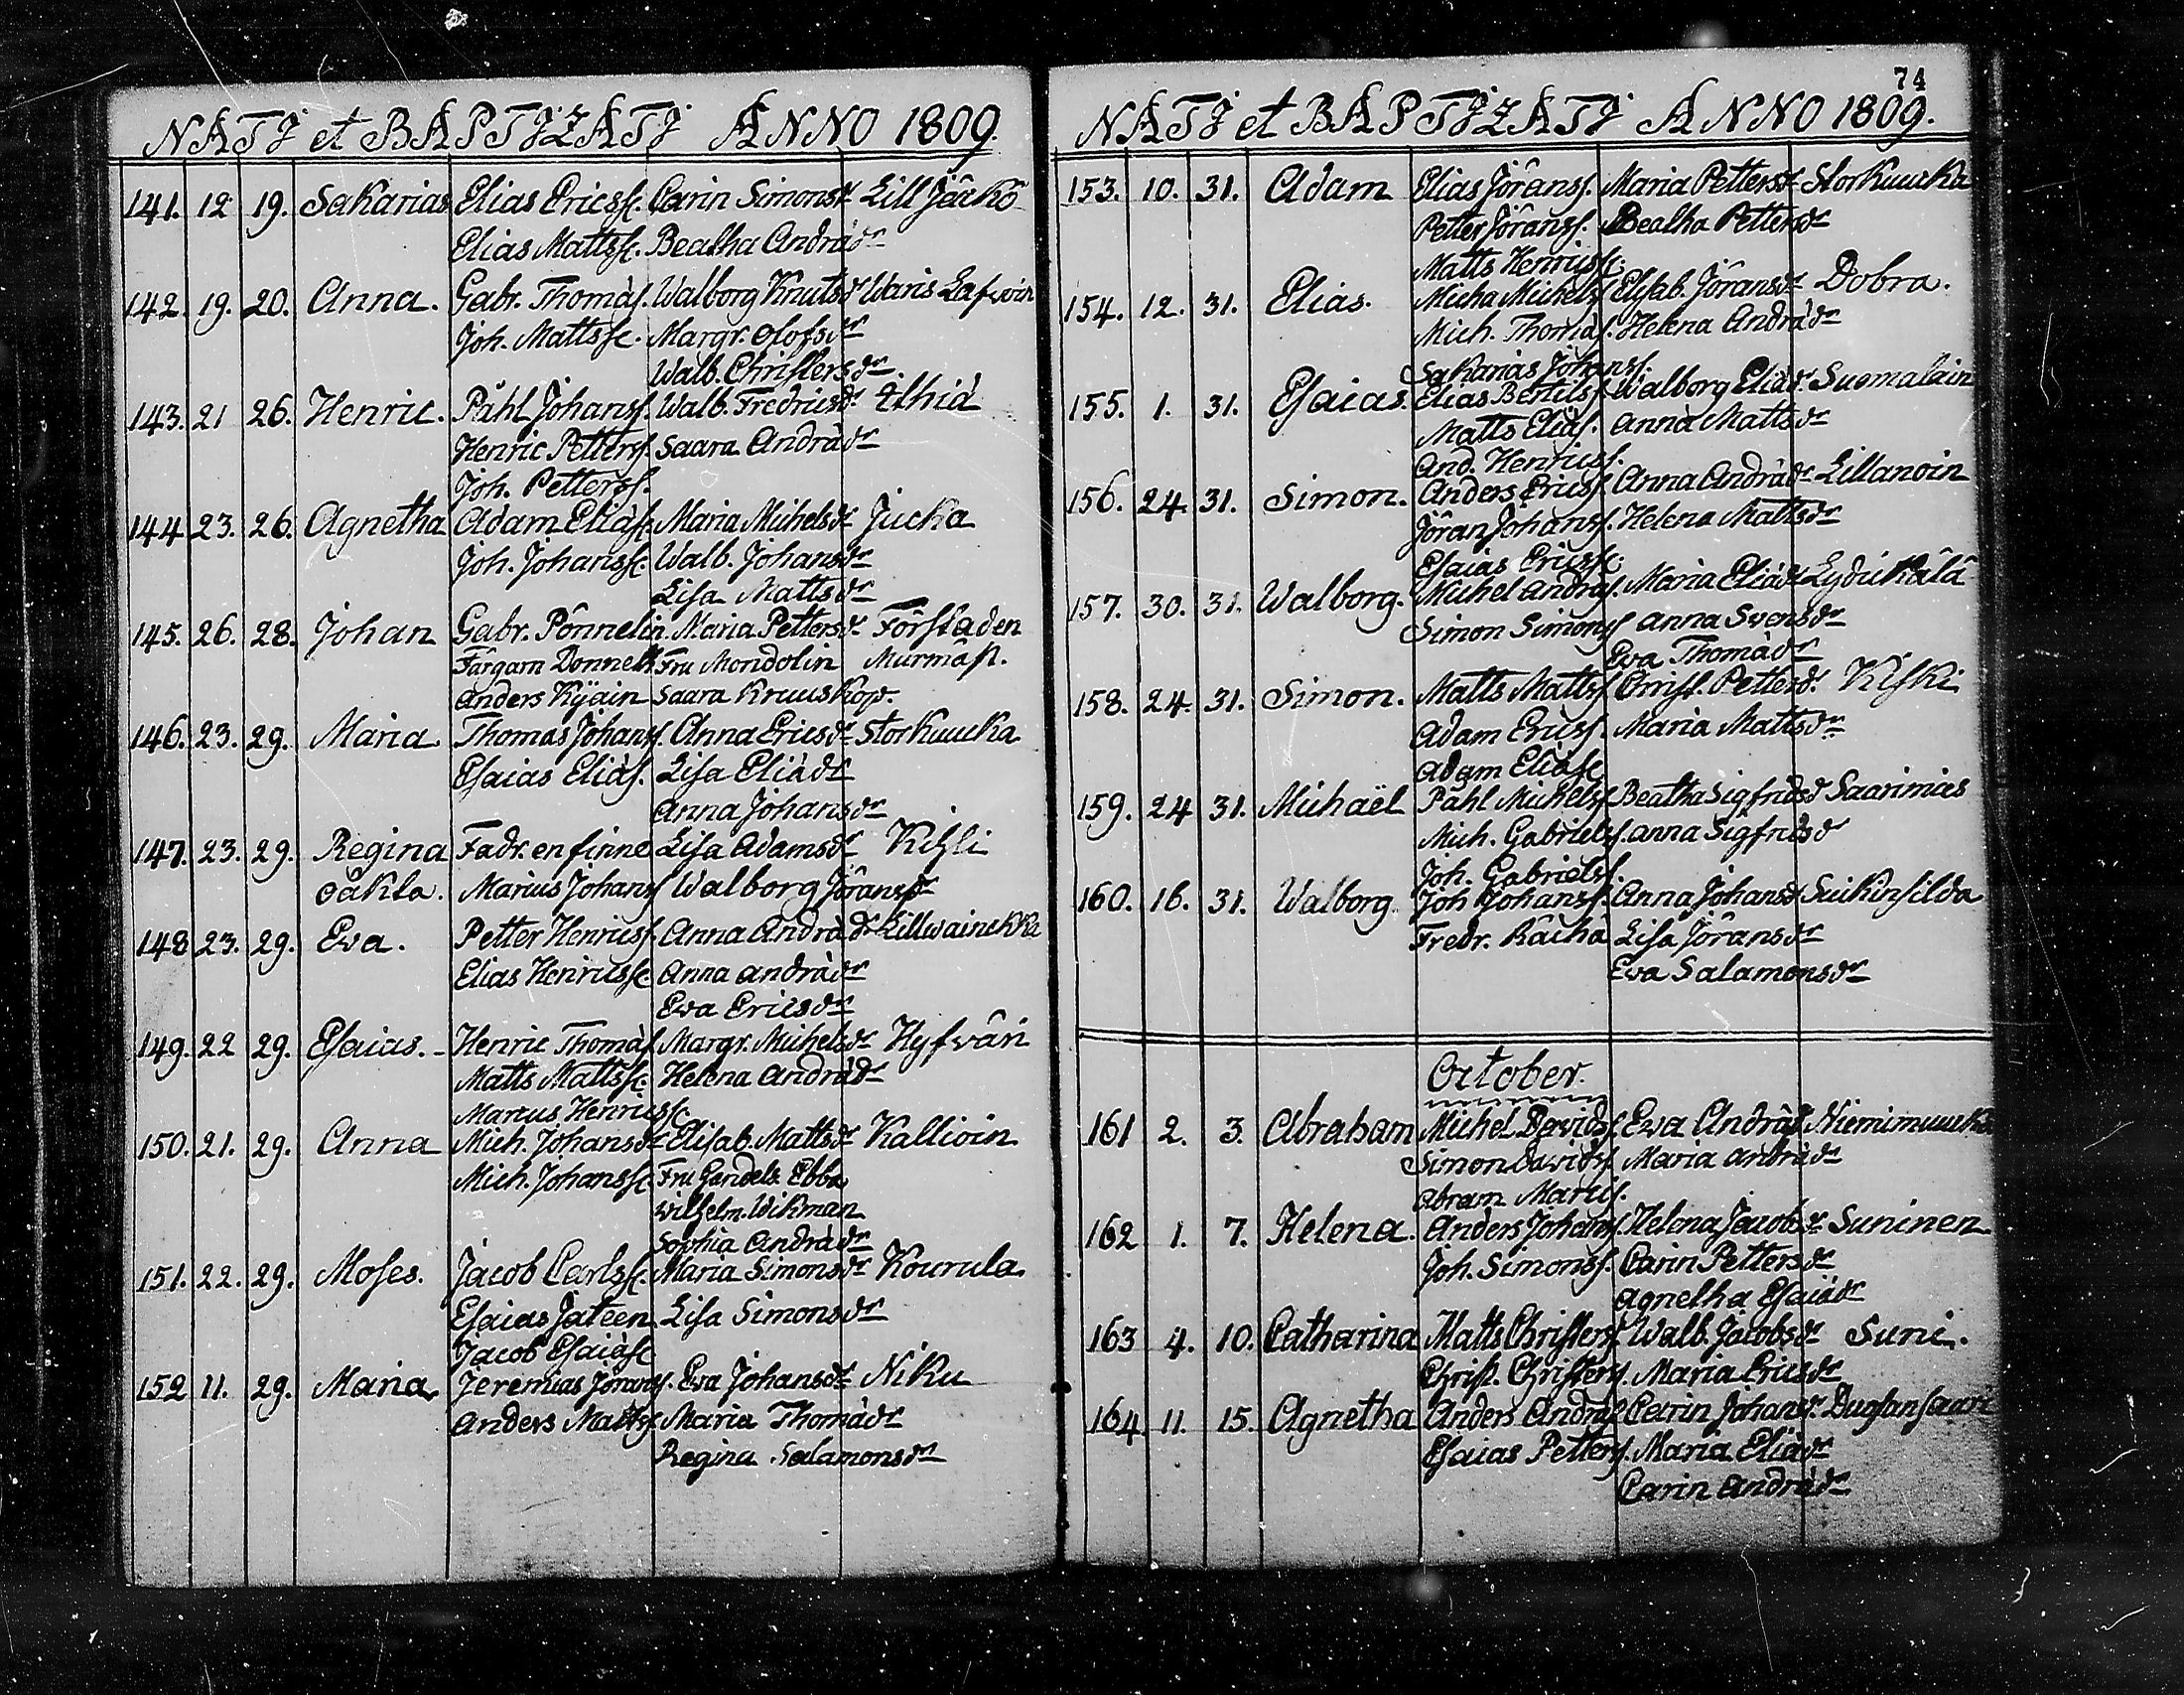 NATJ et BAPTJZATJ ANNO 1809.
141. 12 19. Sakarias Elias Ericss. Carin Simonsdr Lill Järkö
Elias Mattss. Beatha Andrädr
142. 19. 20. Anna. Gabr. Thomäs. Walborg Knutsdr Waris
Joh. Mattss. Margr. Olofsdr
Walb. Christersdr.
143. 21 26. Henric. Påhl Johanss. Walb. Fredricsdr
Henric Petterss. Saara Andrädr
Joh. Petterss.
144 23. 26. Agnetha Adam Eliäss. Maria Michelsdr Jucka
Joh. Johanss. Walb. Johansdr
Lisa Mattsdr
145. 26. 28. Johan Gabr. Pönnelin. Maria Pettersdr Förstaden
Färgarn Fru Mondolin Murmäst.
Anders Kyäin Saara Kruuskop.
146. 23. 29. Maria Thomas Johanss. Anna Ericsdr Storkuucka
Esaias Eliäs. Lisa Eliädr
Anna Johansdr
147. 23. 29. Regina Fadr. en finne Lisa Adamsdr Kihli
oäkta. Marcus Johanss Walborg Jöransdr
148 23. 29. Eva. Petter Henricss. Anna Andrädr Lillwaineckka
Elias Henricss. Anna Andrädr
Eva Ericsdr
149. 22 29. Esaias. Henric Thomäs. Margr. Michelsdr Hyfwän
Matts Mattss. Helena Andrädr
Marcus Henricss.
150. 21. 29. Anna Mich. Johansdr Elisab. Mattsdr Kallioin
Mich. Johanss. Fru Ebba
Wilhelm. Wikman
Sophia Andrädr
151. 22. 29. Moses. Jacob Carlss. Maria Simonsdr Kourula
Esaias Jateen Lisa Simonsdr
Jacob Esaiäss
152 11. 29. Maria Jeremias Jöranss. Eva Johansdr Niku
Anders Mattss Maria Thomädr
Regina Salamonsdr
74
NATJ et BAPTJZATJ ANNO 1809.
153. 10. 31. Adam Elias Jöranss. Maria Pettersdr Storkuucka
Petter Jöranss. Beatha Pettersdr
Matts Henricss.
154. 12. 31. Elias. Micha Michelss. Elisab. Jöransdr Dobra.
Mich. Thomäs. Helena Andrädr
Sakarias Johanss.
155. 1. 31. Esaias. Elias Bertilss Walborg Eliädr Suomaläin
Matts Eliäs. Anna Mattsdr
And. Henricss.
156. 24. 31. Simon. Anders Ericss. Anna Andrädr Lillanoin
Jöran Johanss. Helena Mattsdr
Esaias Ericss.
157. 30. 31. Walborg. Michel Andräs. Maria Eliädr Lydickälä
Simon Simonss Anna Svensdr
Eva Thomädr
158. 24. 31. Simon. Matts Mattss. Christ. Pettersdr. Kiski
Adam Ericss. Maria Mattsdr
Adam Eliäss
159. 24 31. Michaël Påhl Michelss. Beatha Sigfridsdr Saarimias
Mich. Gabrielss. Anna Sigfridsdr
Joh. Gabrielss.
160. 16. 31. Walborg. Joh Johanss. Anna Johansdr
Fredr. Räihä Lisa Jöransdr
Eva Salamonsdr
October.
161 2. 3. Abraham Michel Davidss. Eva Andrädr Niemimuucka
Simon Davidss Maria Andrädr
Abram Marcss.
162 1. 7. Helena. Anders Johanss. Helena Jacobsdr Suninen
Joh. Simonss. Carin Pettersdr
Agnetha Esaiädr
163 4. 10. Catharina Matts Christerss Walb. Jacobsdr Suni.
Christ. Christerss. Maria Ericsdr
164 11. 15. Agnetha Anders Andräs Carin Johansdr.
Esaias Petterss. Maria Eliädr
Carin Andrädr